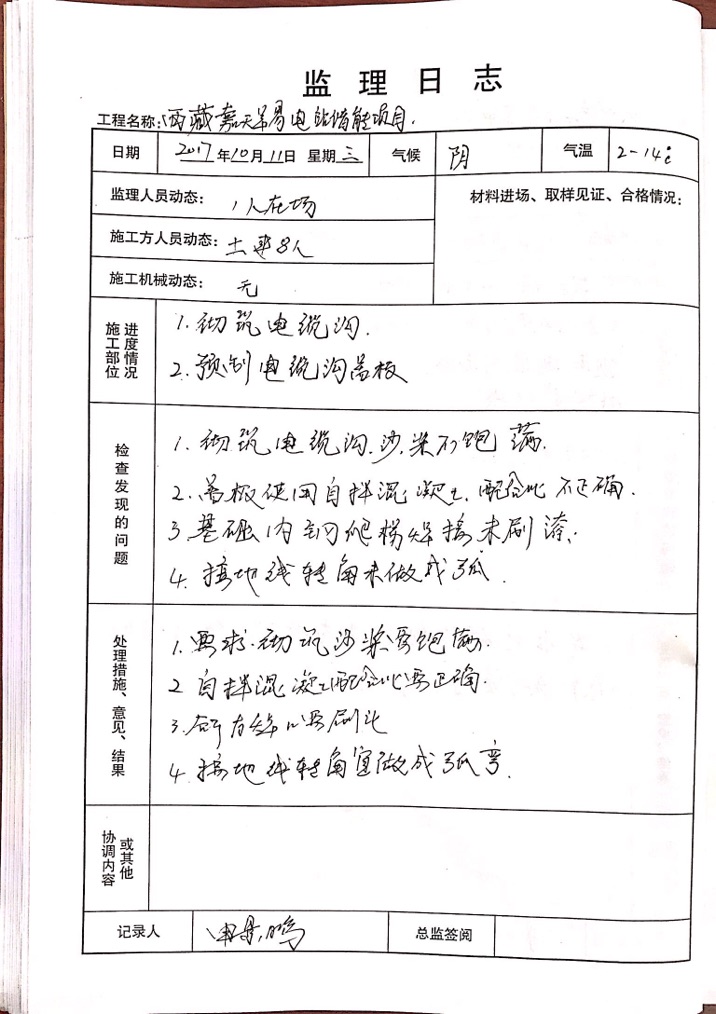 监理日志
工程名称：西藏嘉天 易电站储能项目.
日期 2017年10月11日 星期三 气候 阴 气温 2-14℃
监理人员动态： 1人在场
材料进场、取样见证、合格情况：
施工方人员动态： 土建8人
施工机械动态： 无
进度情况
施工部位
1. 砌筑电缆沟.
2. 预制电缆沟盖板
检查发现的问题
1. 砌筑电缆沟.沙浆不饱满.
2. 盖板使用自拌混凝土.配合比不正确.
3 基础内 爬梯焊接未刷漆.
4. 接地线转角未做成弧.
处理措施、意见、结果
1. 要求.砌筑沙浆要饱满.
2 自拌混凝土配合比要正确.
3. 所有焊 要刷
4. 接地线转角宜做成弧弯.
或其他
协调内容
记录人
总监签阅